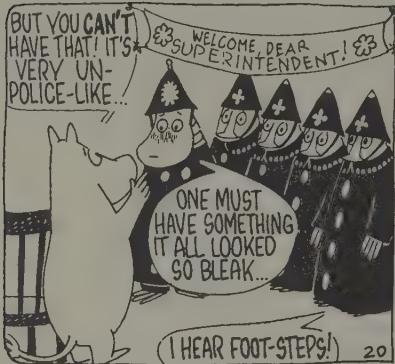 BUT YOU CAN'T
HAVE THAT! IT'S
VERY UN-
POLICE-LIKE...
WELCOME, DEAR
SUPERINTENDENT!
ONE MUST
HAVE SOMETHING
IT ALL LOOKED
SO BLEAK...
I HEAR FOOT-STEPS!
20